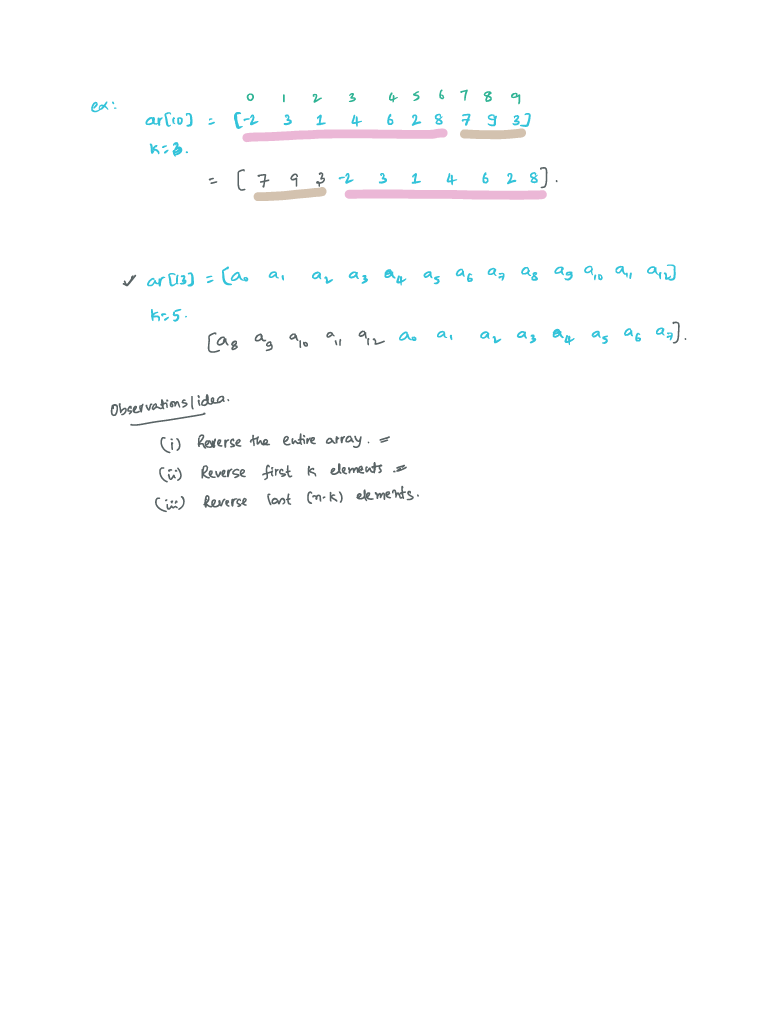 ex:
0 1 2 3 4 5 6 7 8 9
ar[10] = [-2 3 1 4 6 2 8 7 9 3]
k=3.
= [7 9 3 -2 3 1 4 6 2 8].
✓ ar[13] = [a0 a1 a2 a3 a4 a5 a6 a7 a8 a9 a10 a11 a12]
k=5.
[a8 a9 a10 a11 a12 a0 a1 a2 a3 a4 a5 a6 a7].
Observations/idea.
(i) Reverse the entire array. =
(ii) Reverse first k elements. =
(iii) Reverse last (n-k) elements.